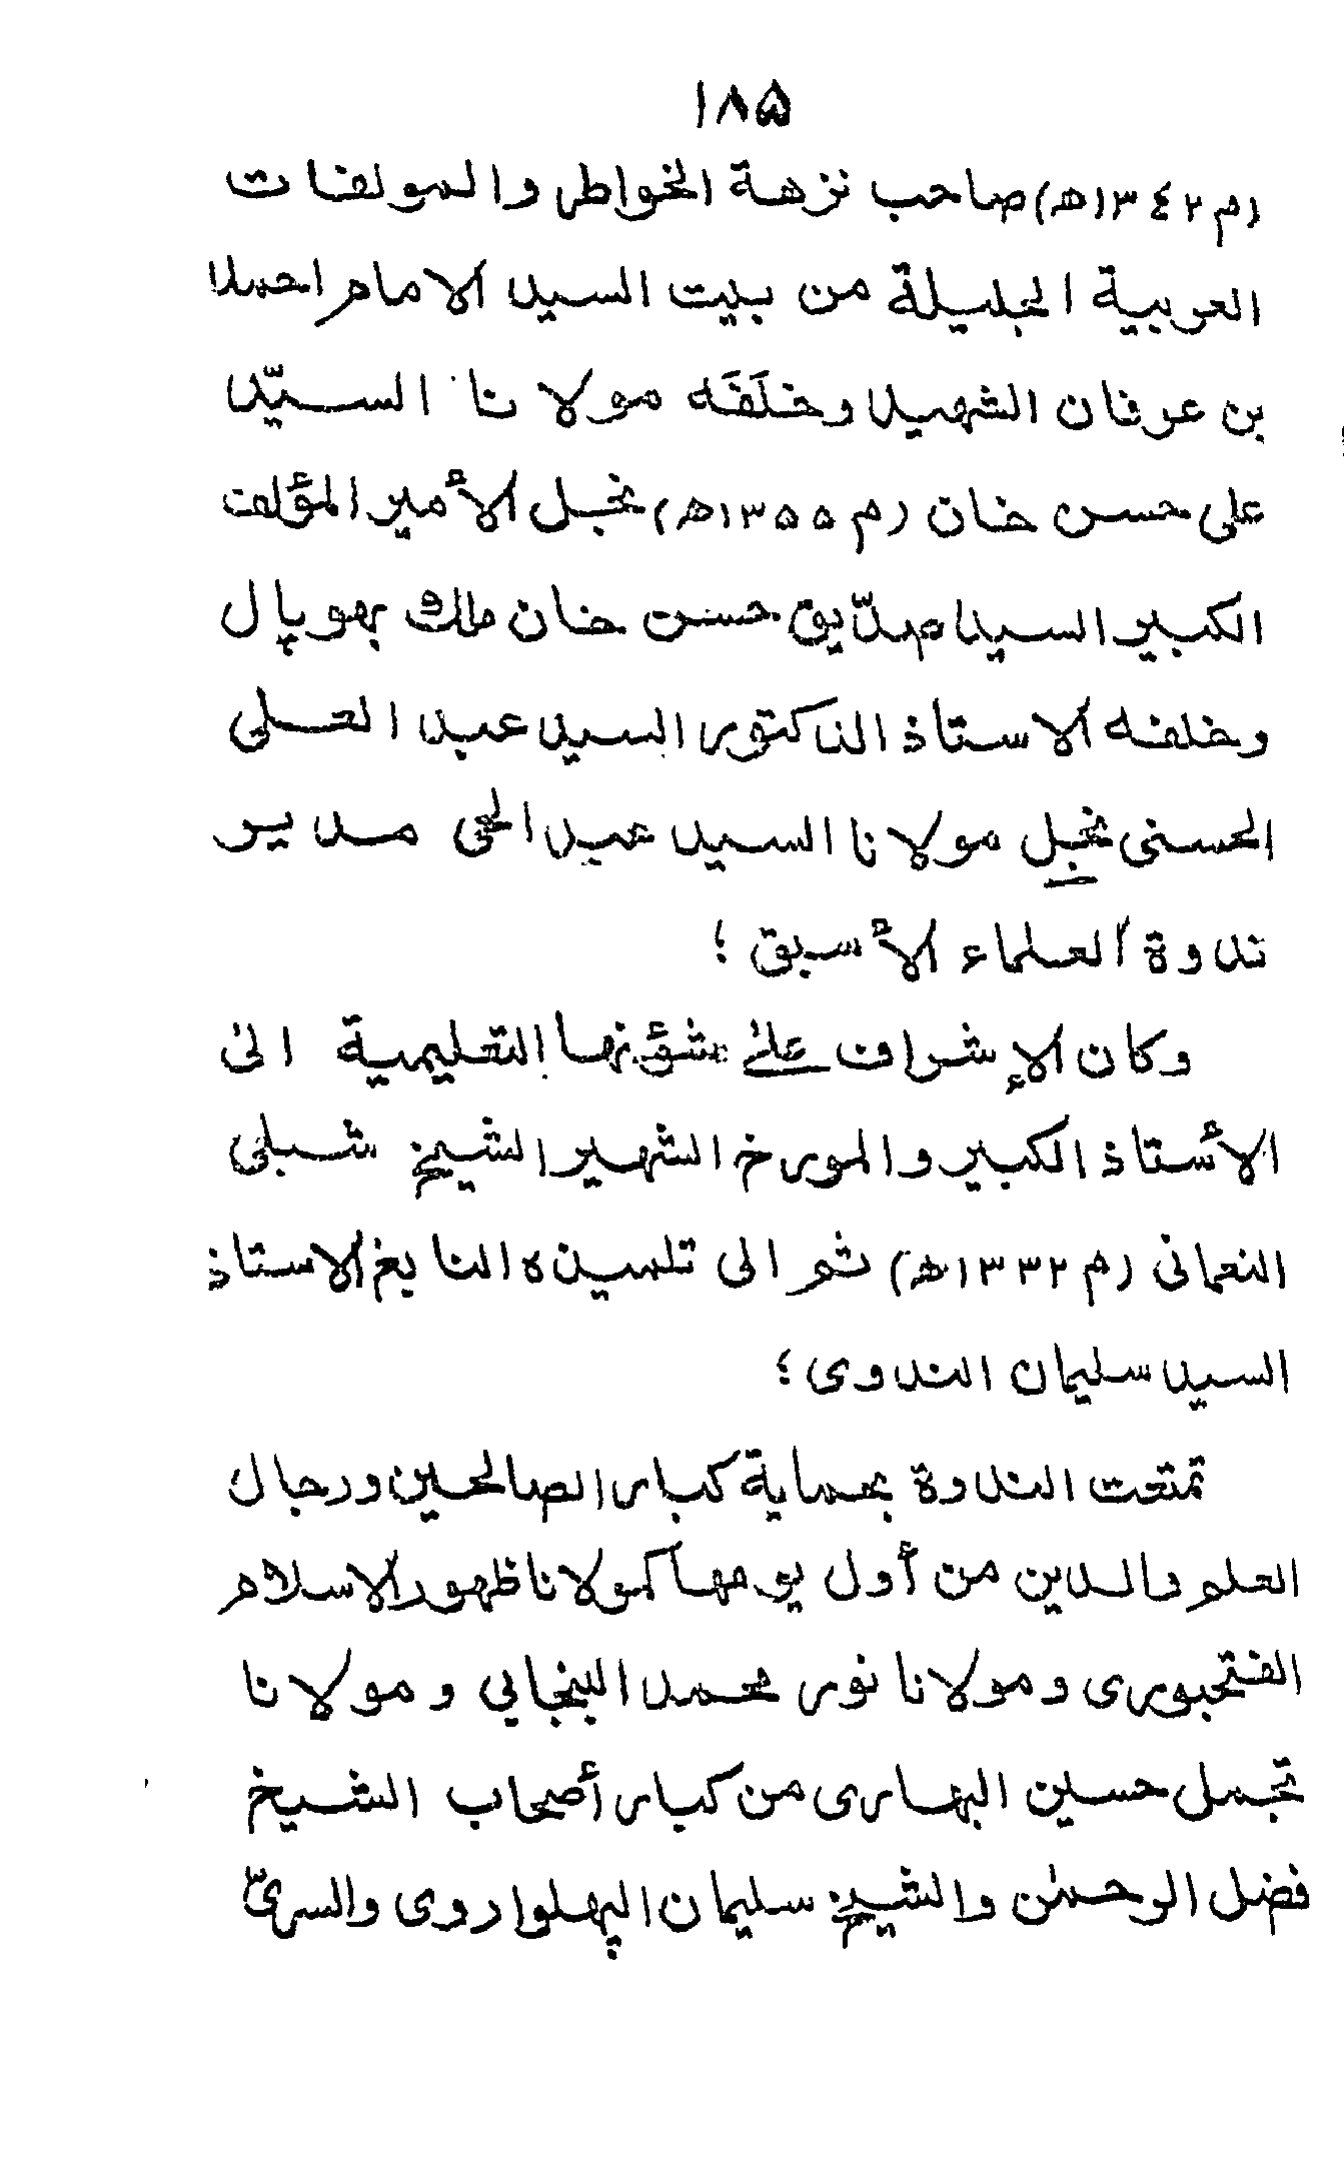 ١٨۵
(م ١٣٤٢ھ) صاحب نزهة الخواطر والمولفات
العربية الجليلة من بيت السيد الامام احمد
بن عرفان الشهيد وخلَفَه مولانا السيّد
على حسن خان (م ١٣۵۵ھ) نجل الأمير المؤلف
الكبير السيد صدّيق حسن خان ملك بهوپال
وخلفه الاستاذ الدكتور السيد عبد العلى
الحسنى نجل مولانا السيد عبد الحى مدير
ندوة العلماء الأسبق ؛
وكان الإشراف علىٰ شؤنها التعليمية الىٰ
الأستاذ الكبير والمورخ الشهير الشيخ شبلى
النعمانى (م ١٣٣٢ھ) ثم الى تلميذه النابغ الاستاذ
السيد سليمان الندوى ؛
تمتعت الندوة بحماية كبار الصالحين ورجال
العلم والدين من أول يومها كمولانا ظهور الاسلام
الفتحبورى ومولانا نور محمد البنجابي ومولانا
تجمل حسين البهارى من كبار أصحاب الشيخ
فضل الرحمٰن والشيخ سليمان الپهلواروى والسرىّ